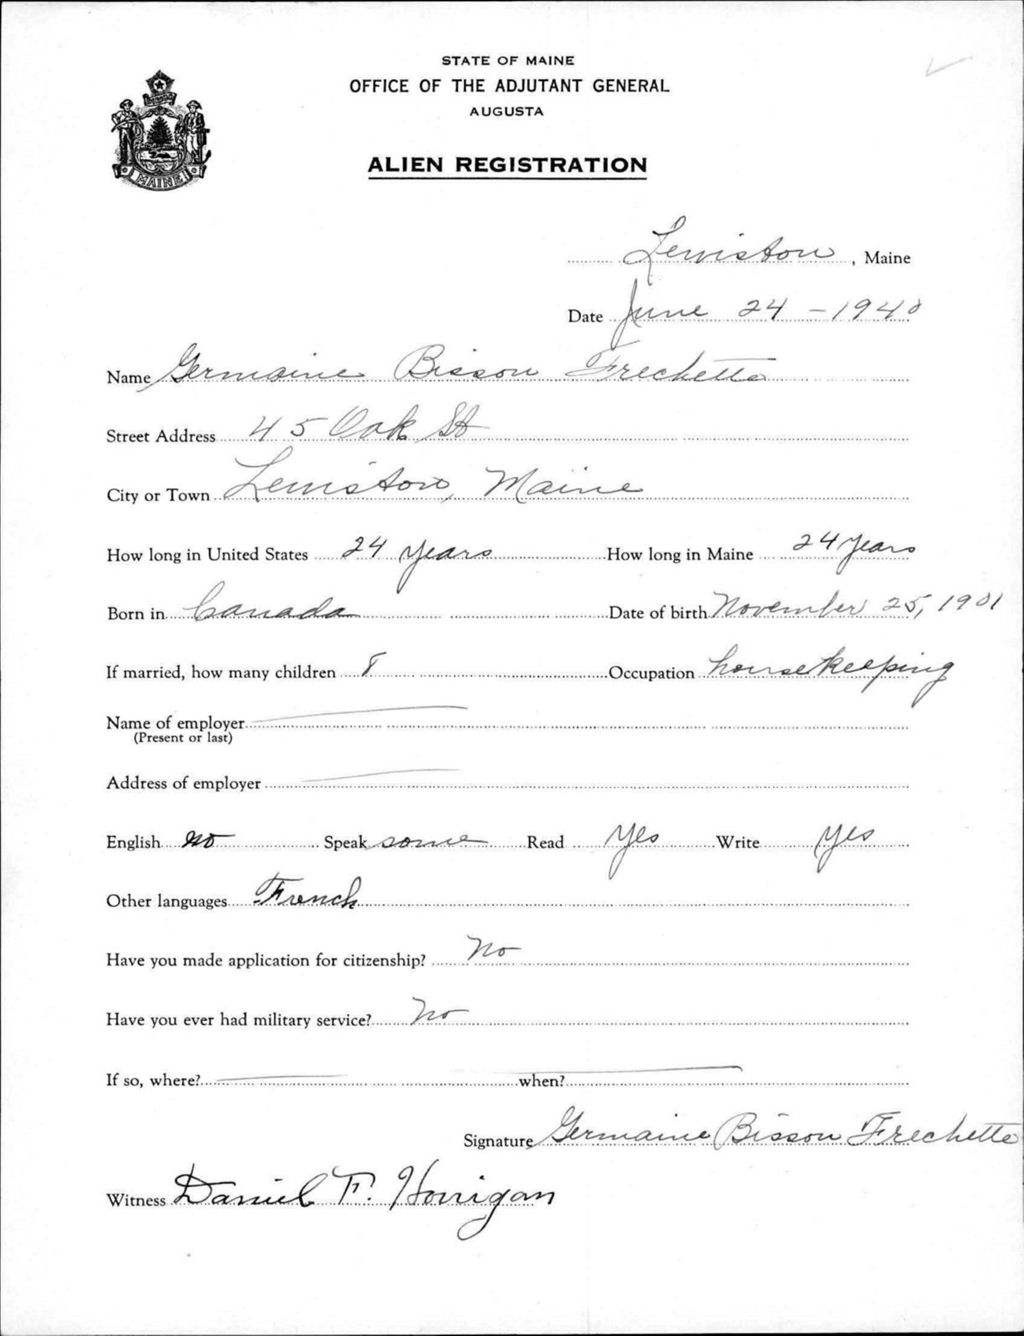 STATE OF MAINE
OFFICE OF THE ADJUTANT GENERAL
AUGUSTA
ALIEN REGISTRATION
MAINE
Lewiston, Maine
Date June 24 - 1940
Name Germaine Bisson Frechette
Street Address 45 Oak St
City or Town Lewiston, Maine
How long in United States 24 years How long in Maine 24 years
Born in Canada Date of birth November 25, 1901
If married, how many children 8 Occupation housekeeping
Name of employer
(Present or last)
Address of employer
English no Speak some Read yes Write yes
Other languages French
Have you made application for citizenship? No
Have you ever had military service? No
If so, where? when?
Signature Germaine Bisson Frechette
Witness Daniel F. Horrigan